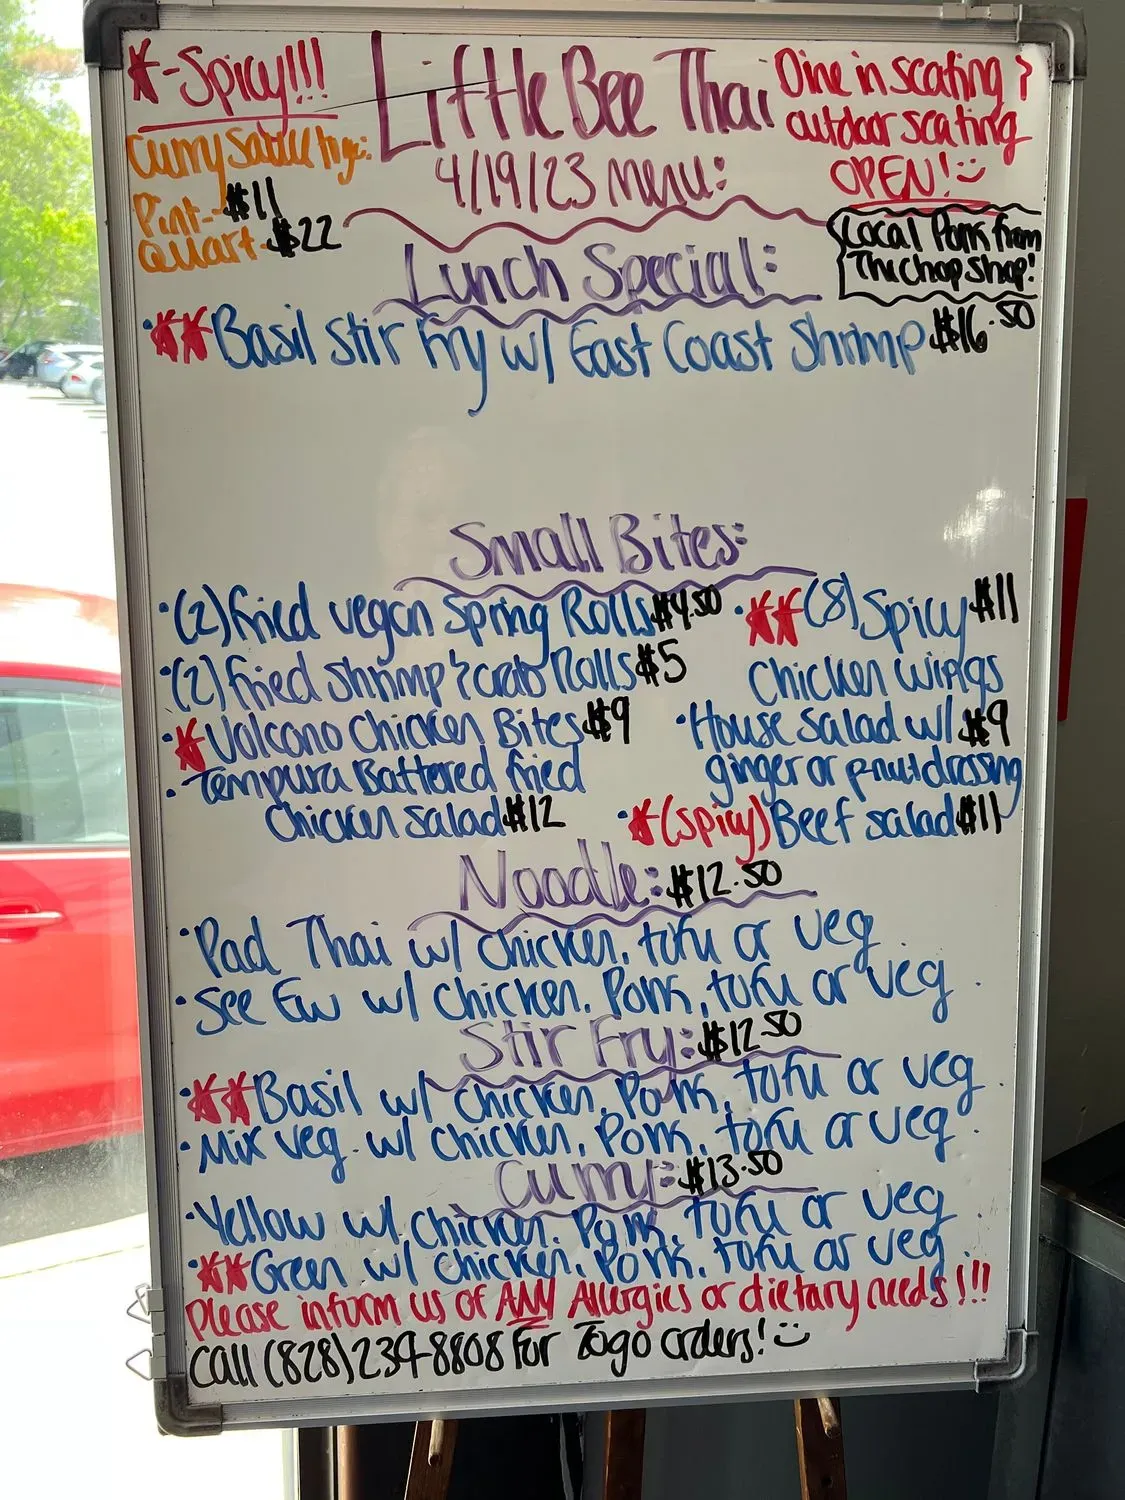 *-Spicy!!!
Little Bee Thai
4/19/23 Menu:
Dine in seating &
outdoor seating
OPEN!
Curry Sauce togo:
Pint- $11
Quart- $22
Local Pork from
The Chop Shop!
Lunch Special:
• ** Basil Stir Fry w/ East Coast Shrimp $16.50
Small Bites:
• (2) fried vegan Spring Rolls $4.50
• (2) fried shrimp & crab Rolls $5
• * Volcano Chicken Bites $9
• Tempura Battered fried
chicken salad $12
• ** (8) Spicy $11
Chicken wings
• House Salad w/ $9
ginger or p-nut dressing
• * (spicy) Beef salad $11
Noodle: $12.50
• Pad Thai w/ chicken, tofu or veg
• See Ew w/ chicken, Pork, tofu or veg.
Stir Fry: $12.50
• ** Basil w/ chicken, Pork, tofu or veg.
• Mix veg. w/ chicken, Pork, tofu or veg.
Curry: $13.50
• Yellow w/ chicken, Pork, tofu or veg.
• ** Green w/ chicken, Pork, tofu or veg.
Please inform us of ANY Allergies or dietary needs!!!
Call (828)239-8808 for Togo orders!